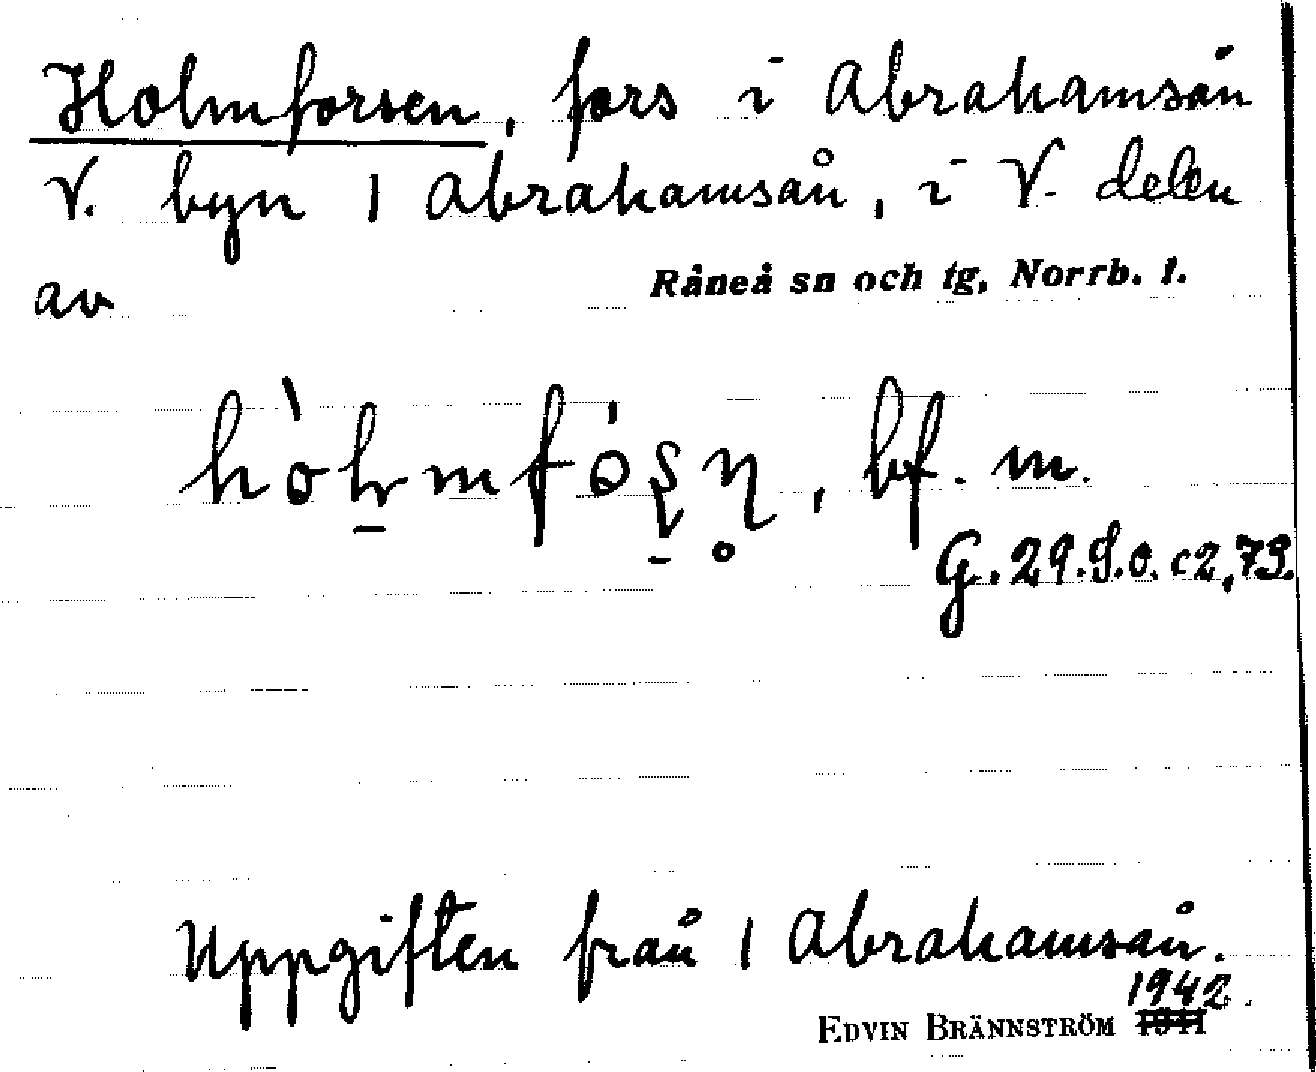 Holmforsen, fors i Abrahamsån
V. byn 1 Abrahamsån, i V. delen
av Råneå sn och tg, Norrb. l.
bf. m.
G. 29. S.o. c2,73.
Uppgiften från 1 Abrahamsån.
EDVIN BRÄNNSTRÖM 1942.